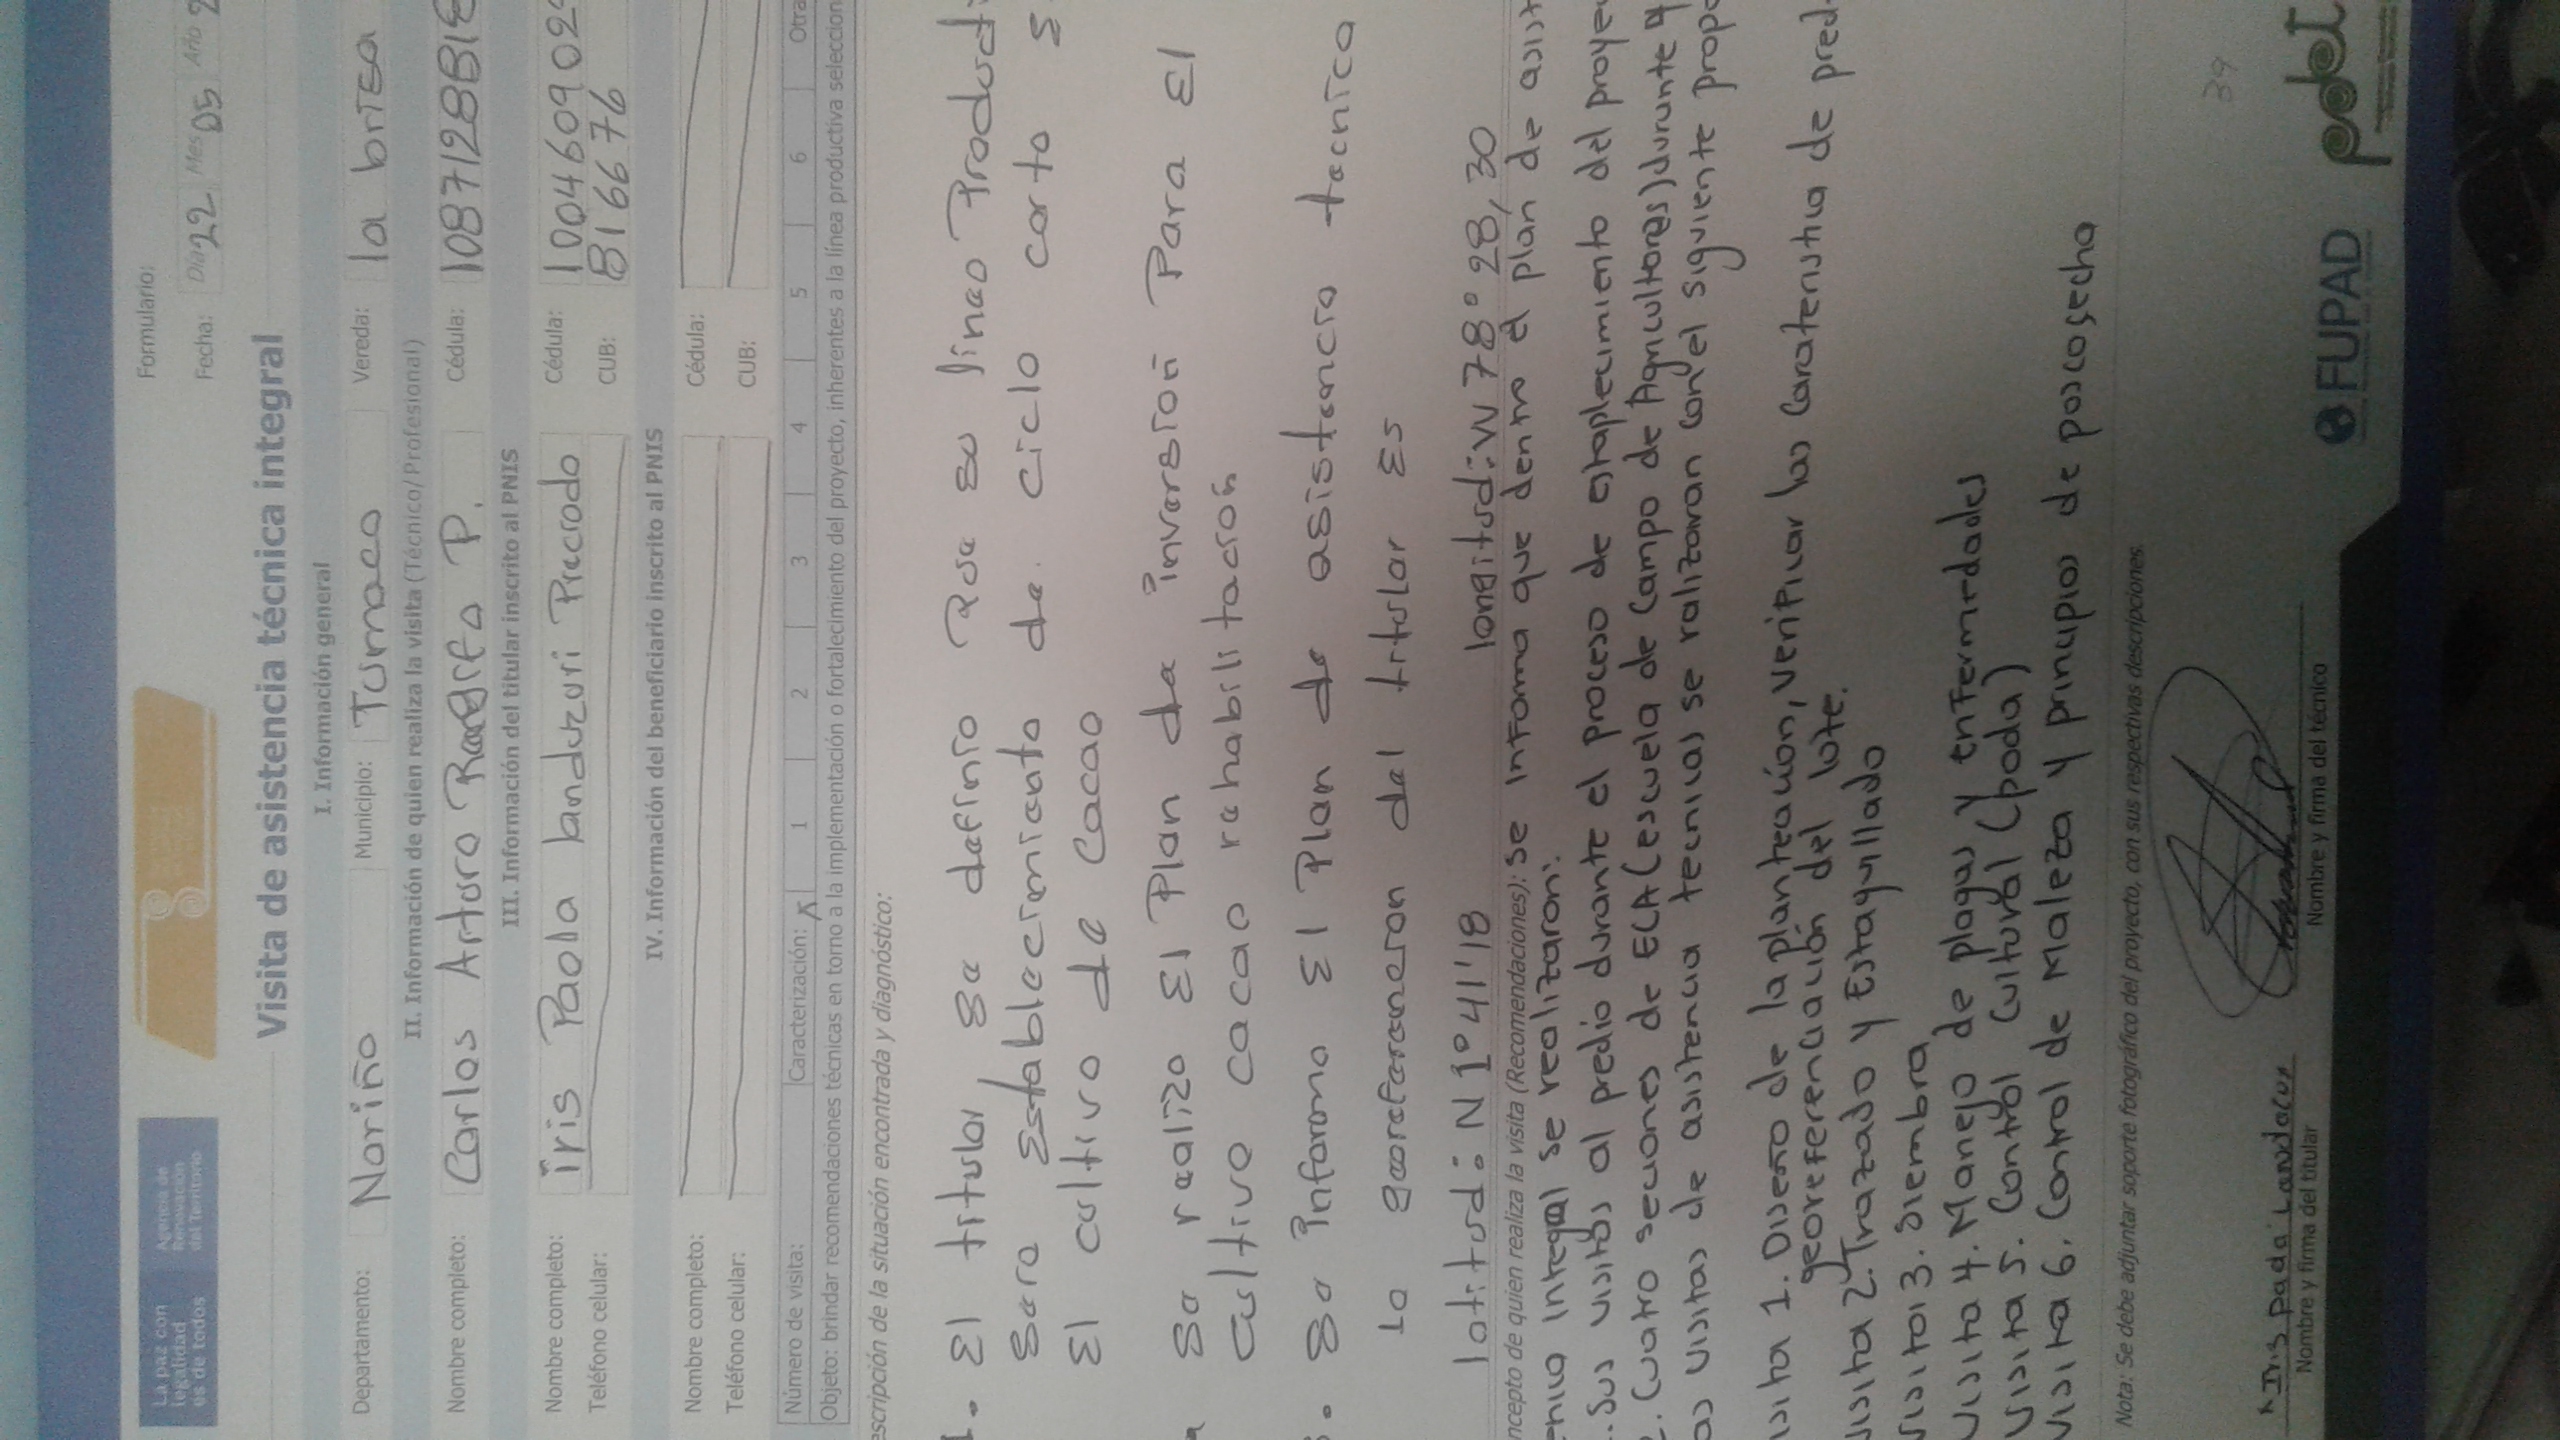 La paz con
legalidad
es de todos
Agencia de
Renovación
del Territorio
Formulario:
Fecha: Día 22 Mes 05 Año 2
Visita de asistencia técnica integral
I. Información general
Departamento: Nariño Municipio: Tumaco Vereda: la brisa
II. Información de quien realiza la visita (Técnico/Profesional)
Nombre completo: Carlos Arturo P. Cédula: 1087128818
III. Información del titular inscrito al PNIS
Nombre completo: iris Paola landazuri Preciado Cédula: 100460902
Teléfono celular: CUB: 8166676
IV. Información del beneficiario inscrito al PNIS
Nombre completo: Cédula:
Teléfono celular: CUB:
Número de visita: Caracterización: X 1 2 3 4 5 6 Otra
Objeto: brindar recomendaciones técnicas en torno a la implementación o fortalecimiento del proyecto, inherentes a la línea productiva seleccion
escripción de la situación encontrada y diagnóstico:
1. El titular se definio que su linea Producti
sera establecimiento de ciclo corto
El cultivo de cacao
se realizo El Plan de inversion Para El
cultivo cacao rehabilitacion
. se informo El Plan de asistencia tecnica
la del titular Es
latitud: N 1° 41'18 longitud: W 78° 28, 30
ncepto de quien realiza la visita (Recomendaciones): se informa que dentro el plan de asist
integral se realizaron:
. sus visitas al predio durante el proceso de estaplecimiento del proye
2. cuatro seciones de ECA (escuela de campo de Agricultores) durante 4
as visitas de asistencia tecnicas se realizaran con el siguiente prop
isita 1. Diseño de la planteación, verificar las de pred
georeferenciación del lote.
visita 2. Trazado y Estaquillado
visita 3. siembra
visita 4. Manejo de plagas y enfermedades
visita 5. Control Cultural (poda)
visita 6. Control de Maleza y principios de poscosecha
Nota: Se debe adjuntar soporte fotográfico del proyecto, con sus respectivas descripciones.
Iris paola
Nombre y firma del titular Nombre y firma del técnico
39
FUPAD
pdet